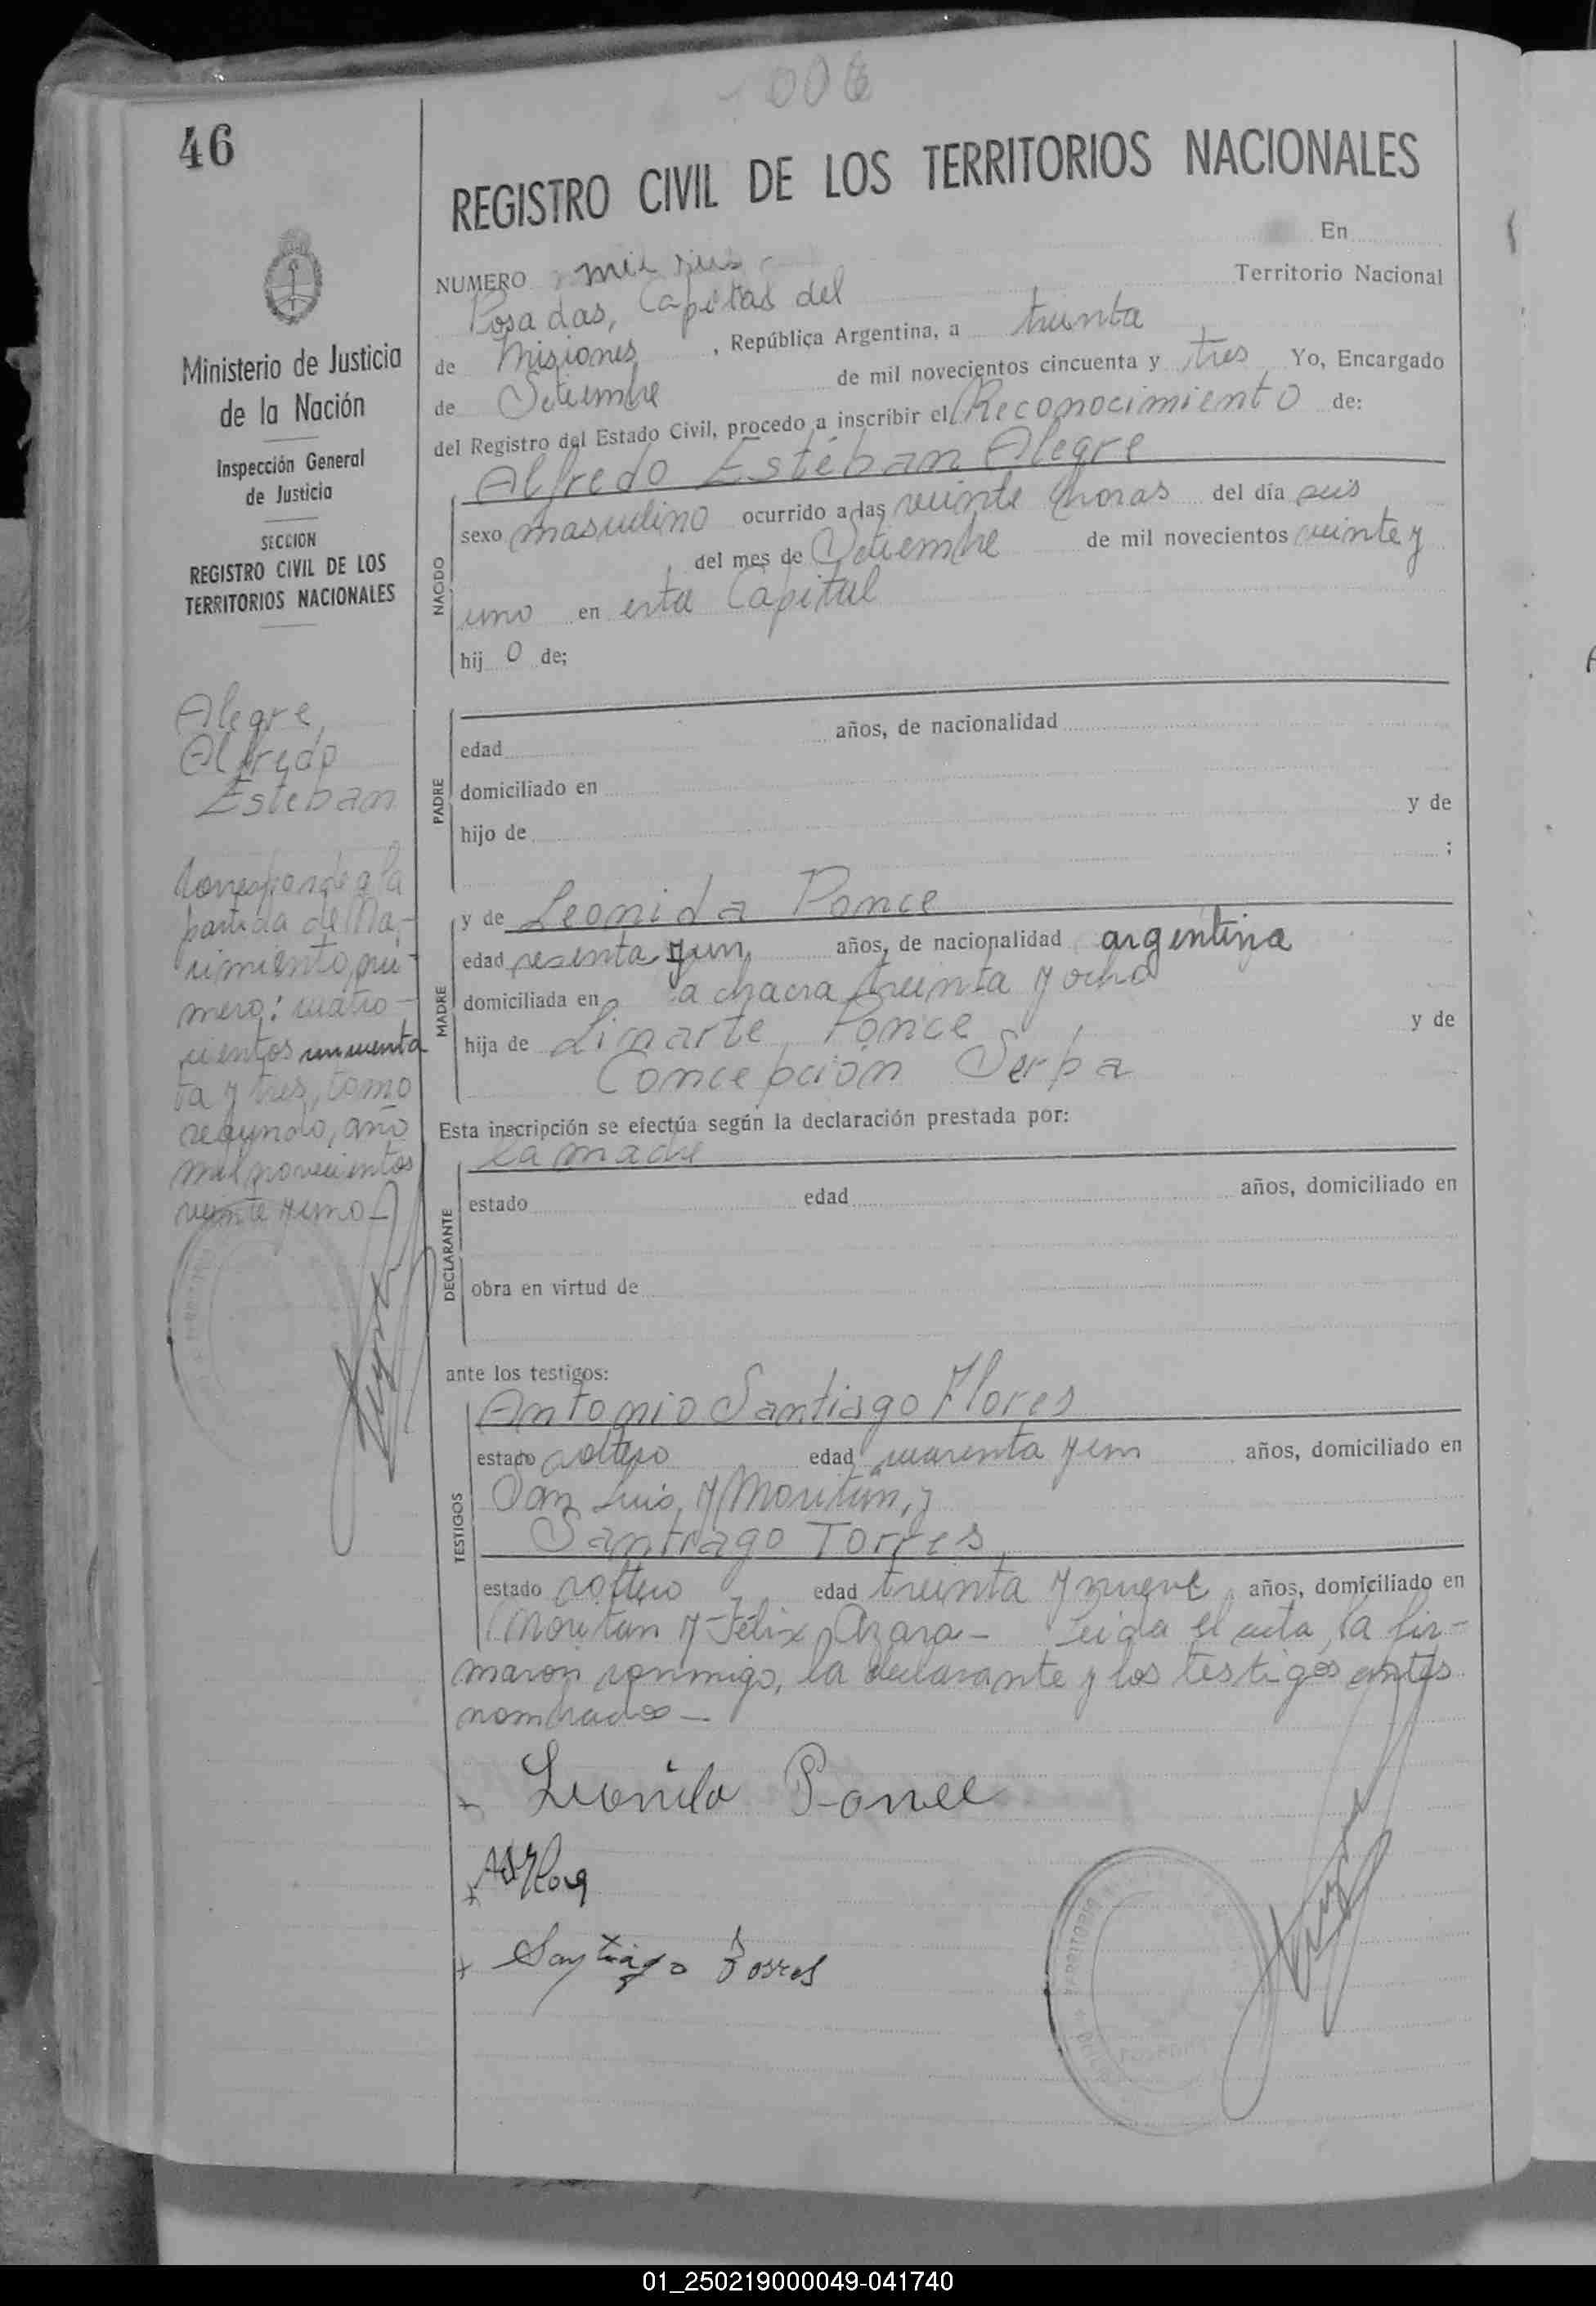 006
46
REGISTRO CIVIL DE LOS TERRITORIOS NACIONALES
En
NUMERO mil seis
Territorio Nacional
Posadas, Capital del
de Misiones, República Argentina, a treinta
de Setiembre de mil novecientos cincuenta y tres Yo, Encargado
del Registro del Estado Civil, procedo a inscribir el Reconocimiento de:
Alfredo Estéban Alegre
NACIDO
sexo masculino ocurrido a las veinte horas del día seis
del mes de Setiembre de mil novecientos veinte y
uno en esta Capital
hijo de;
PADRE
edad años, de nacionalidad
domiciliado en
hijo de y de
;
MADRE
y de Leonida Ponce
edad sesenta y un años, de nacionalidad argentina
domiciliada en la chacra treinta y ocho
hija de Ponce y de
Concepción
Esta inscripción se efectúa según la declaración prestada por:
La madre
DECLARANTE
estado edad años, domiciliado en
obra en virtud de
ante los testigos:
TESTIGOS
Antonio Santiago Flores
estado soltero edad cuarenta y un años, domiciliado en
San Luis y Moritán, y
Santiago Torres
estado soltero edad treinta y nueve años, domiciliado en
Moritan y Félix Azara- Leida el acta, la fir-
maron conmigo, la declarante y los testigos antes
nombrados-
Leonida Ponce
Santiago Torres
Ministerio de Justicia
de la Nación
Inspección General
de Justicia
SECCION
REGISTRO CIVIL DE LOS
TERRITORIOS NACIONALES
Alegre,
Alfredo
Esteban
Corresponde a la
partida de Na-
cimiento nú-
mero: cuatro-
cientos
ta y tres, tomo
segundo, año
mil novecientos
veinte y uno-
01_250219000049-041740